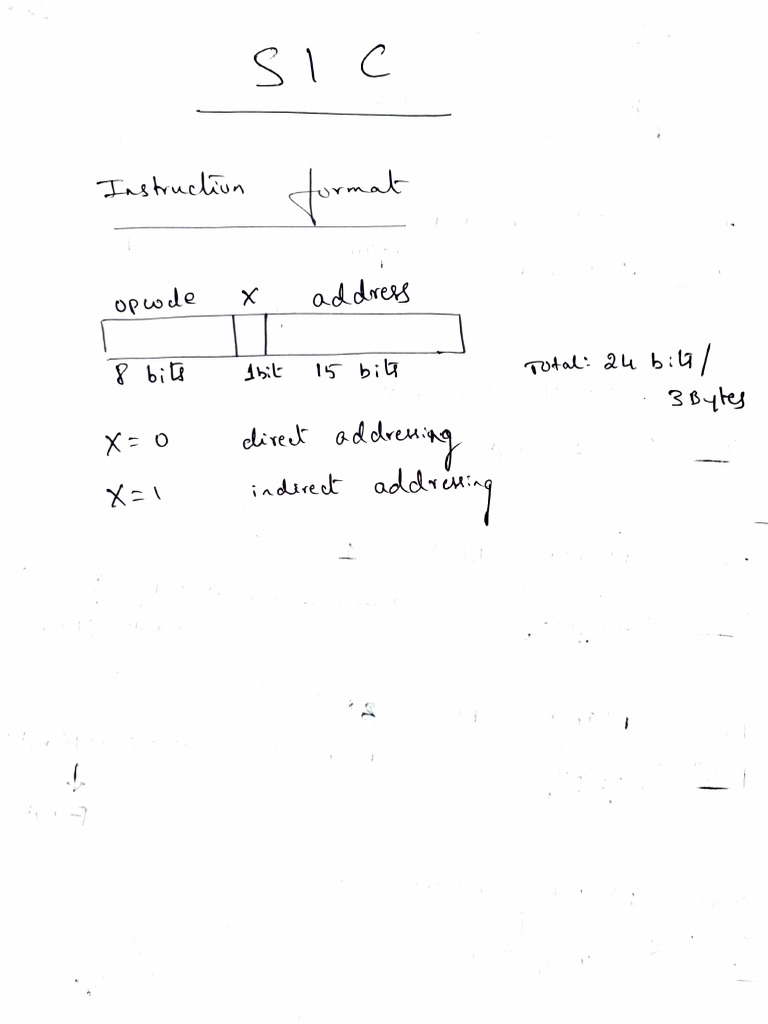 SIC
Instruction format
opcode X address
8 bits 1bit 15 bits
Total: 24 bits/
3 Bytes
X = 0 direct addressing
X = 1 indirect addressing